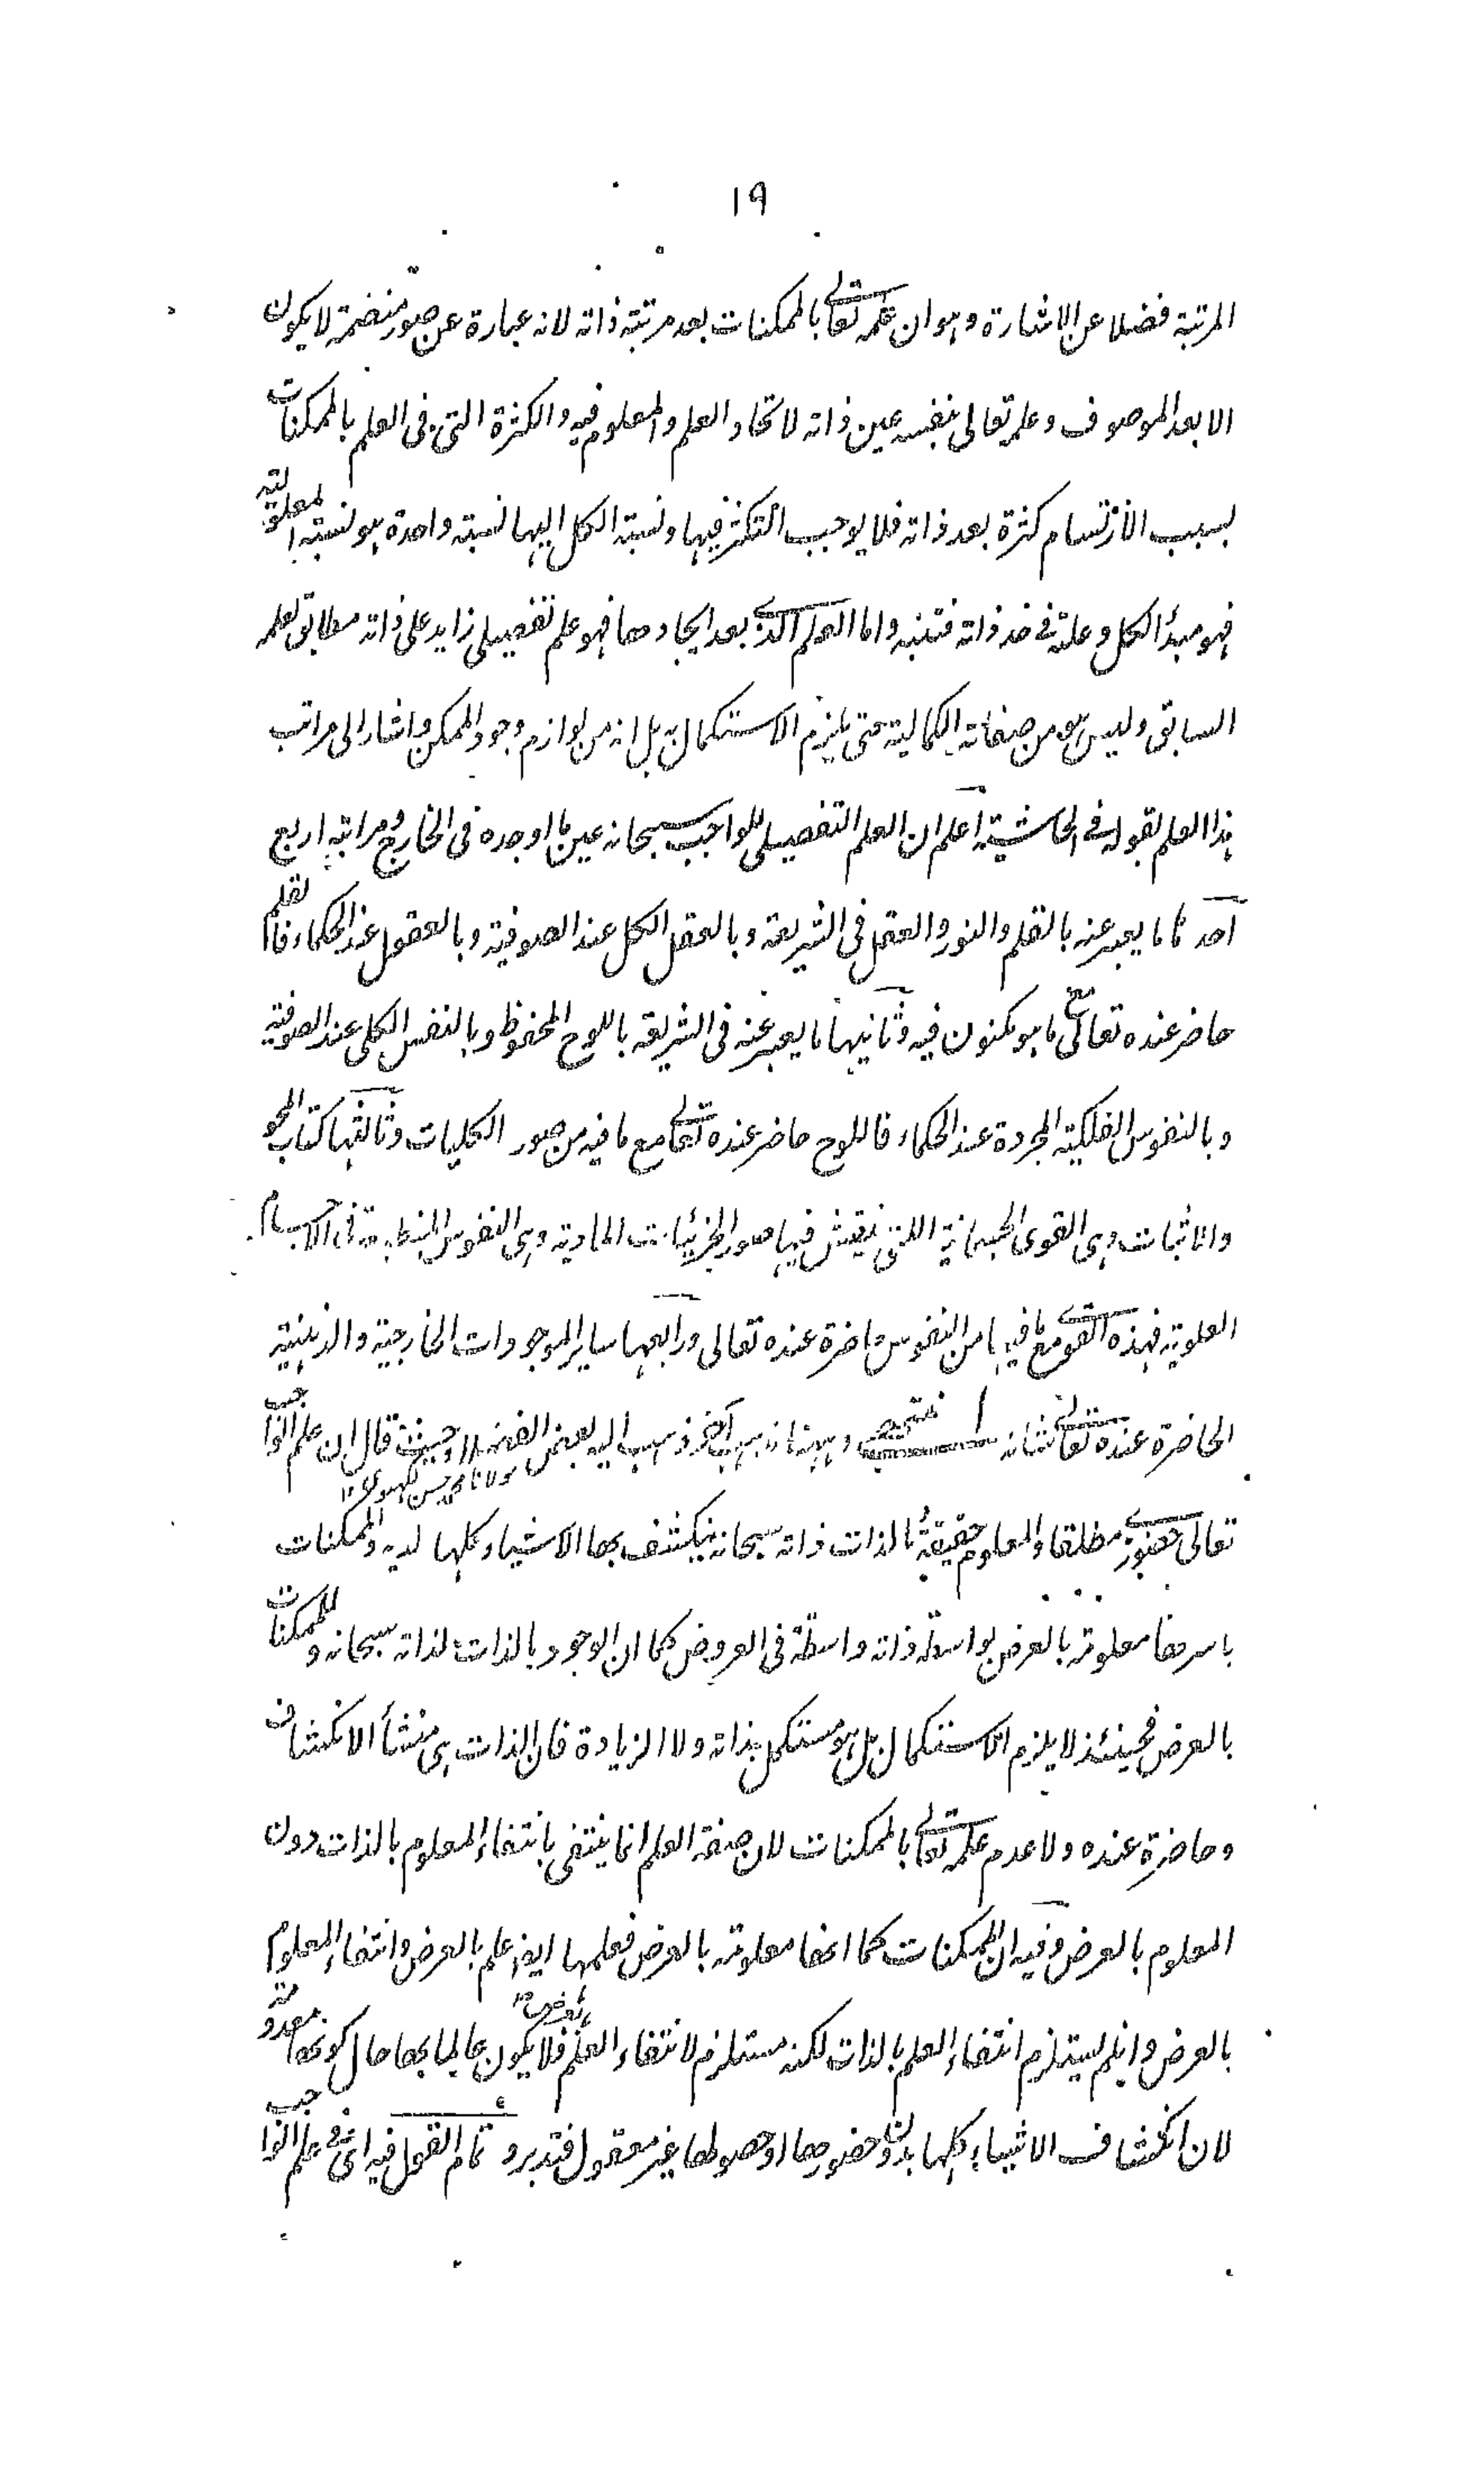 ١٩
المرتبة فضلا عن الاشارة وهو ان علمه تعالى بالممكنات بعد مرتبة ذاته لانه عبارة عن صور منضمة لا يكون
الا بعد الموصوف وعلمه تعالى بنفسه عين ذاته لاتحاد العلم والمعلوم فيه والكثرة التى فى العلم بالممكنات
بسبب الارتسام كثرة بعد ذاته فلا يوجب التكثر فيها ونسبة الكل اليها نسبة واحدة هو نسبة المعلولية
فهو مبدأ الكل وعلة فى حد ذاته فتنبه واما العلم الذى بعد ايجادها فهو علم تفصيلى زايد على ذاته مطابق لعلمه
السابق وليس هو من صفاته الكمالية حتى يلزم الاستكمال به بل انه من لوازم وجود الممكن واشار الى مراتب
هذا العلم بقوله فى الحاشية اعلم ان العلم التفصيلى للواجب سبحانه عين ما اوجده فى الخارج ومراتبه اربع
احدها ما يعبر عنه بالقلم والنور والعقل فى الشريعة وبالعقل الكل عند الصوفية وبالعقول عند الحكماء فالقلم
حاضر عنده تعالى مع ما هو مكنون فيه وثانيها ما يعبر عنه فى الشريعة باللوح المحفوظ وبالنفس الكلى عند الصوفية
وبالنفوس الفلكية المجردة عند الحكماء فاللوح حاضر عنده تعالى مع ما فيه من صور الكليات وثالثها كتاب المحو
والاثبات وهى القوى الجسمانية اللتى ينقش فيها صور الجزئيات المادية وهى النفوس المنطبعة فى الاجسام
العلوية فهذه القوى مع ما فيها من النفوس حاضرة عنده تعالى ورابعها ساير الموجودات الخارجية والذهنية
الحاضرة عنده تعالى شانه انتهى وههنا مذهب آخر ذهب اليه بعض الفضلاء ١٢ حيث قال ان علم الواجب
مولانا محمد حسن لكهنوى ١٢
تعالى حضورى مطلقا والمعلوم حقيقة بالذات ذاته سبحانه ينكشف بها الاشياء كلها لديه والممكنات
باسرها معلومة بالعرض بواسطة ذاته واسطة فى العروض كما ان الوجود بالذات لذاته سبحانه وللممكنات
بالعرض فحينئذ لا يلزم الاستكمال بل هو مستكمل بذاته ولا الزيادة فان الذات هى منشأ الانكشاف
وحاضرة عنده ولا عدم علمه تعالى بالممكنات لان صفة العلم انما ينتفى بانتفاء المعلوم بالذات دون
المعلوم بالعرض وفيه ان الممكنات كما انها معلومة بالعرض فعلمها ايضا علم بالعرض وانتفاء المعلوم
بالعرض وان لم يستلزم انتفاء العلم بالذات لكنه مستلزم لانتفاء العلم بالعرض فلا يكون عالما بها حال كونها معدومة
لان انكشاف الاشياء كلها بدون حضورها او حصولها غير معقول فتدبر وتمام القول فيه اى فى علم الواجب